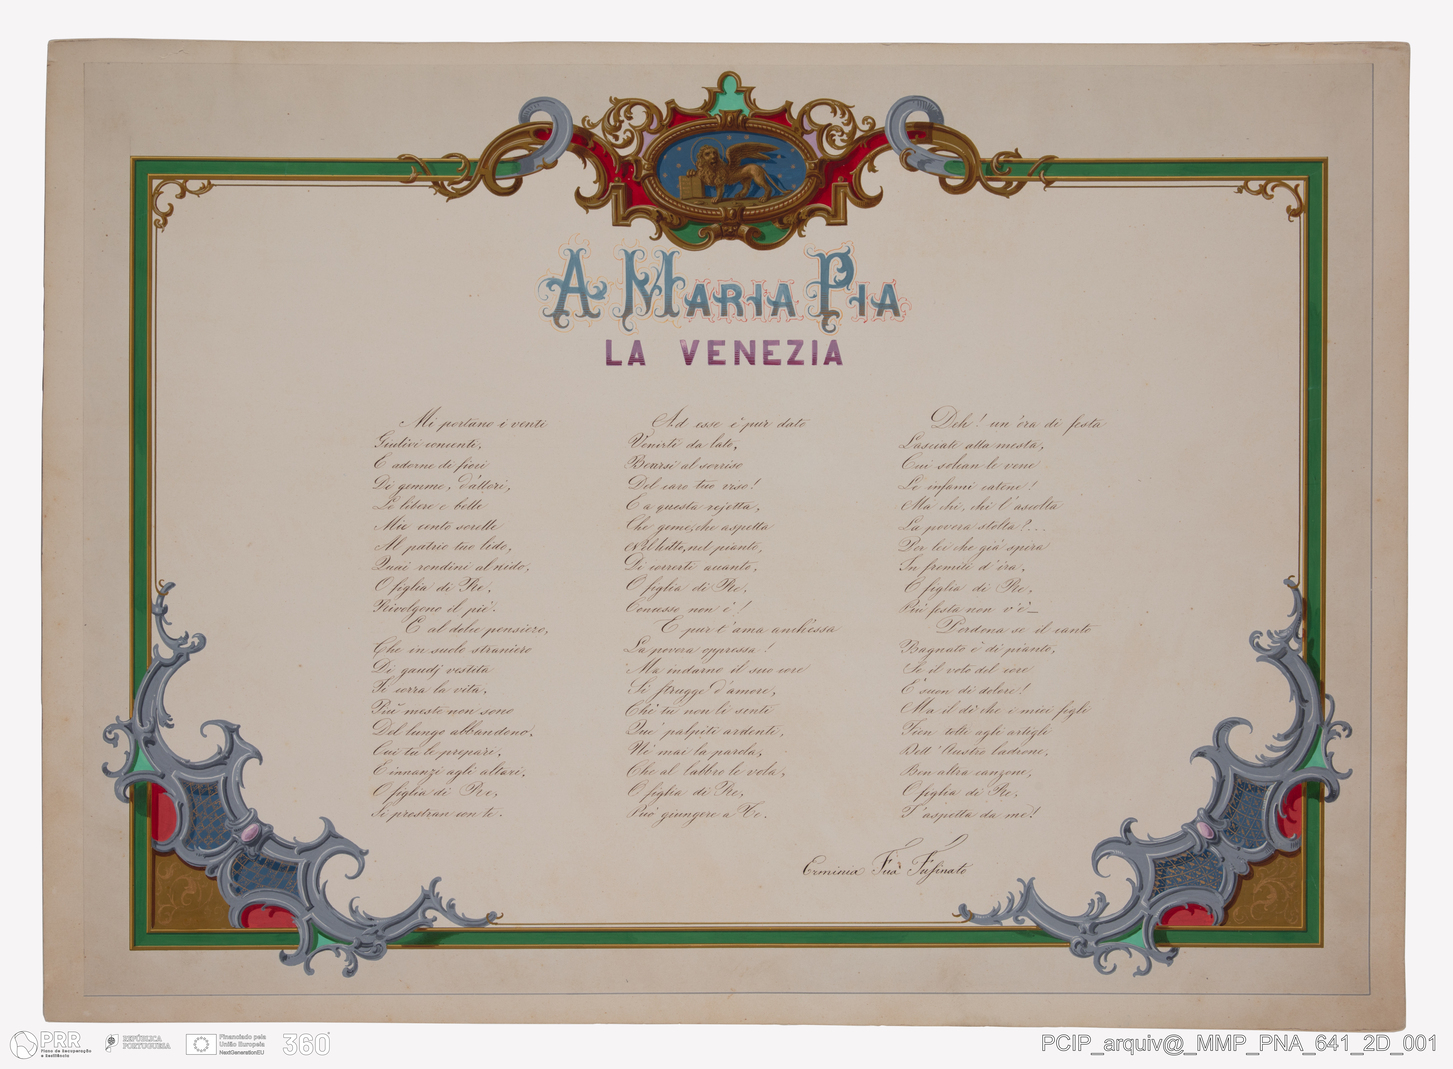 A MARIA PIA
LA VENEZIA
Mi portano i venti
Giulivi concenti,
E adorne di fiori
Di gemme, d'allori,
Le libere e belle
Mie cento sorelle
Al patrio tuo lido,
Quai rondini al nido,
O figlia di Re,
Rivolgono il piè.
E al dolce pensiero,
Che in suolo straniero
Di gaudj vestita
Ti corra la vita,
Più meste non sono
Del lungo abbandono.
Coi tu le prepari,
E innanzi agli altari,
O figlia di Re,
Si prostran con te.
Ad esse è pur dato
Venirti da lato,
Bearsi al sorriso
Del caro tuo viso!
E a questa rejetta,
Che geme, che aspetta
Nel lutto, nel pianto,
Di correrti accanto,
O figlia di Re,
Concesso non è!
E pur t'ama anch'essa
La povera oppressa!
Ma indarno il suo core
Si strugge d'amore,
Chè tu non li senti
Sui palpiti ardente,
Nè mai la parola,
Che al labbro le vola,
O figlia di Re,
Può giungere a Te.
Deh! un'ora di festa
Lasciate alla mesta,
Cui solcan le vene
Le infami catene!
Ma chi, chi l'ascolta
La povera stolta?...
Per lei che già spira
In fremiti d'ira,
O figlia di Re,
Più festa non v'è_
Perdona se il canto
Bagnato è di pianto,
Se il voto del core
E' suon di dolore!
Ma il dì che i miei figli
Fien tolti agli artigli
Dell'Austro ladrone,
Ben altra canzone,
O figlia di Re,
T'aspetta da me!
Erminia Fuà Fusinato
PRR
Plano de Recuperação
e Resiliência
REPÚBLICA
PORTUGUESA
Financiado pela
União Europeia
NextGenerationEU
360°
PCIP_arquiv@_MMP_PNA_641_2D_001